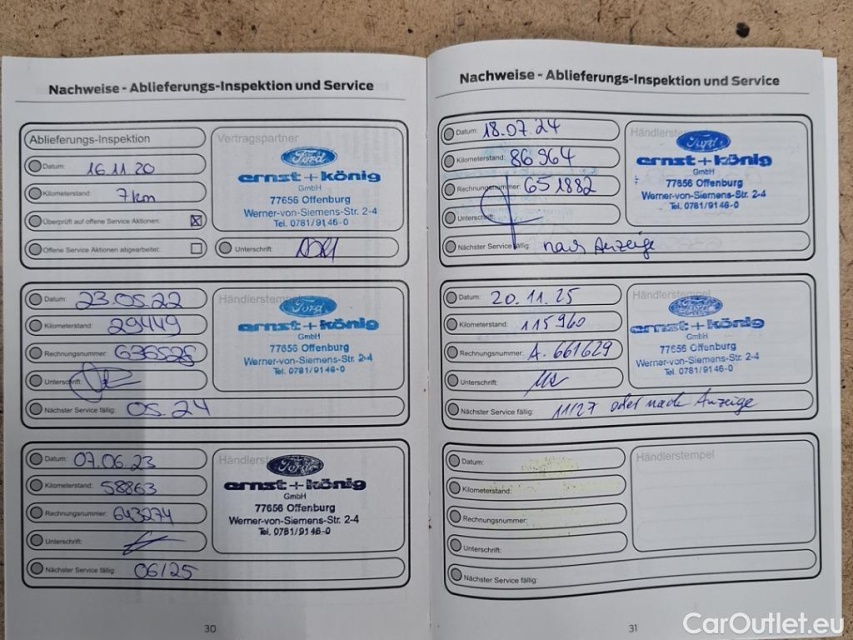 Nachweise - Ablieferungs-Inspektion und Service
Ablieferungs-Inspektion
Datum: 16.11.20
Kilometerstand: 7 km
Überprüft auf offene Service Aktionen:
Offene Service Aktionen abgearbeitet:
Vertragspartner
Ford
ernst + könig
GmbH
77656 Offenburg
Werner-von-Siemens-Str. 2-4
Tel. 0781/9146-0
Unterschrift
Datum: 23.05.22
Kilometerstand: 29449
Rechnungsnummer: 636528
Unterschrift:
Nächster Service fällig: 05.24
Händlerstempel
Ford
ernst + könig
GmbH
77656 Offenburg
Werner-von-Siemens-Str. 2-4
Tel. 0781/9146-0
Datum: 07.06.23
Kilometerstand: 58863
Rechnungsnummer: 643274
Unterschrift:
Nächster Service fällig: 06/25
Händlerstempel
Ford
ernst + könig
GmbH
77656 Offenburg
Werner-von-Siemens-Str. 2-4
Tel. 0781/9146-0
30
Nachweise - Ablieferungs-Inspektion und Service
Datum: 18.07.24
Kilometerstand: 86964
Rechnungsnummer: 651882
Unterschrift:
Nächster Service fällig: nach Anzeige
Händlerstempel
Ford
ernst + könig
GmbH
77656 Offenburg
Werner-von-Siemens-Str. 2-4
Tel. 0781/9146-0
Datum: 20.11.25
Kilometerstand: 115960
Rechnungsnummer: A. 661629
Unterschrift:
Nächster Service fällig: 11/27 oder nach Anzeige
Händlerstempel
Ford
ernst + könig
GmbH
77656 Offenburg
Werner-von-Siemens-Str. 2-4
Tel. 0781/9146-0
Datum:
Kilometerstand:
Rechnungsnummer:
Unterschrift:
Nächster Service fällig:
Händlerstempel
31
CarOutlet.eu